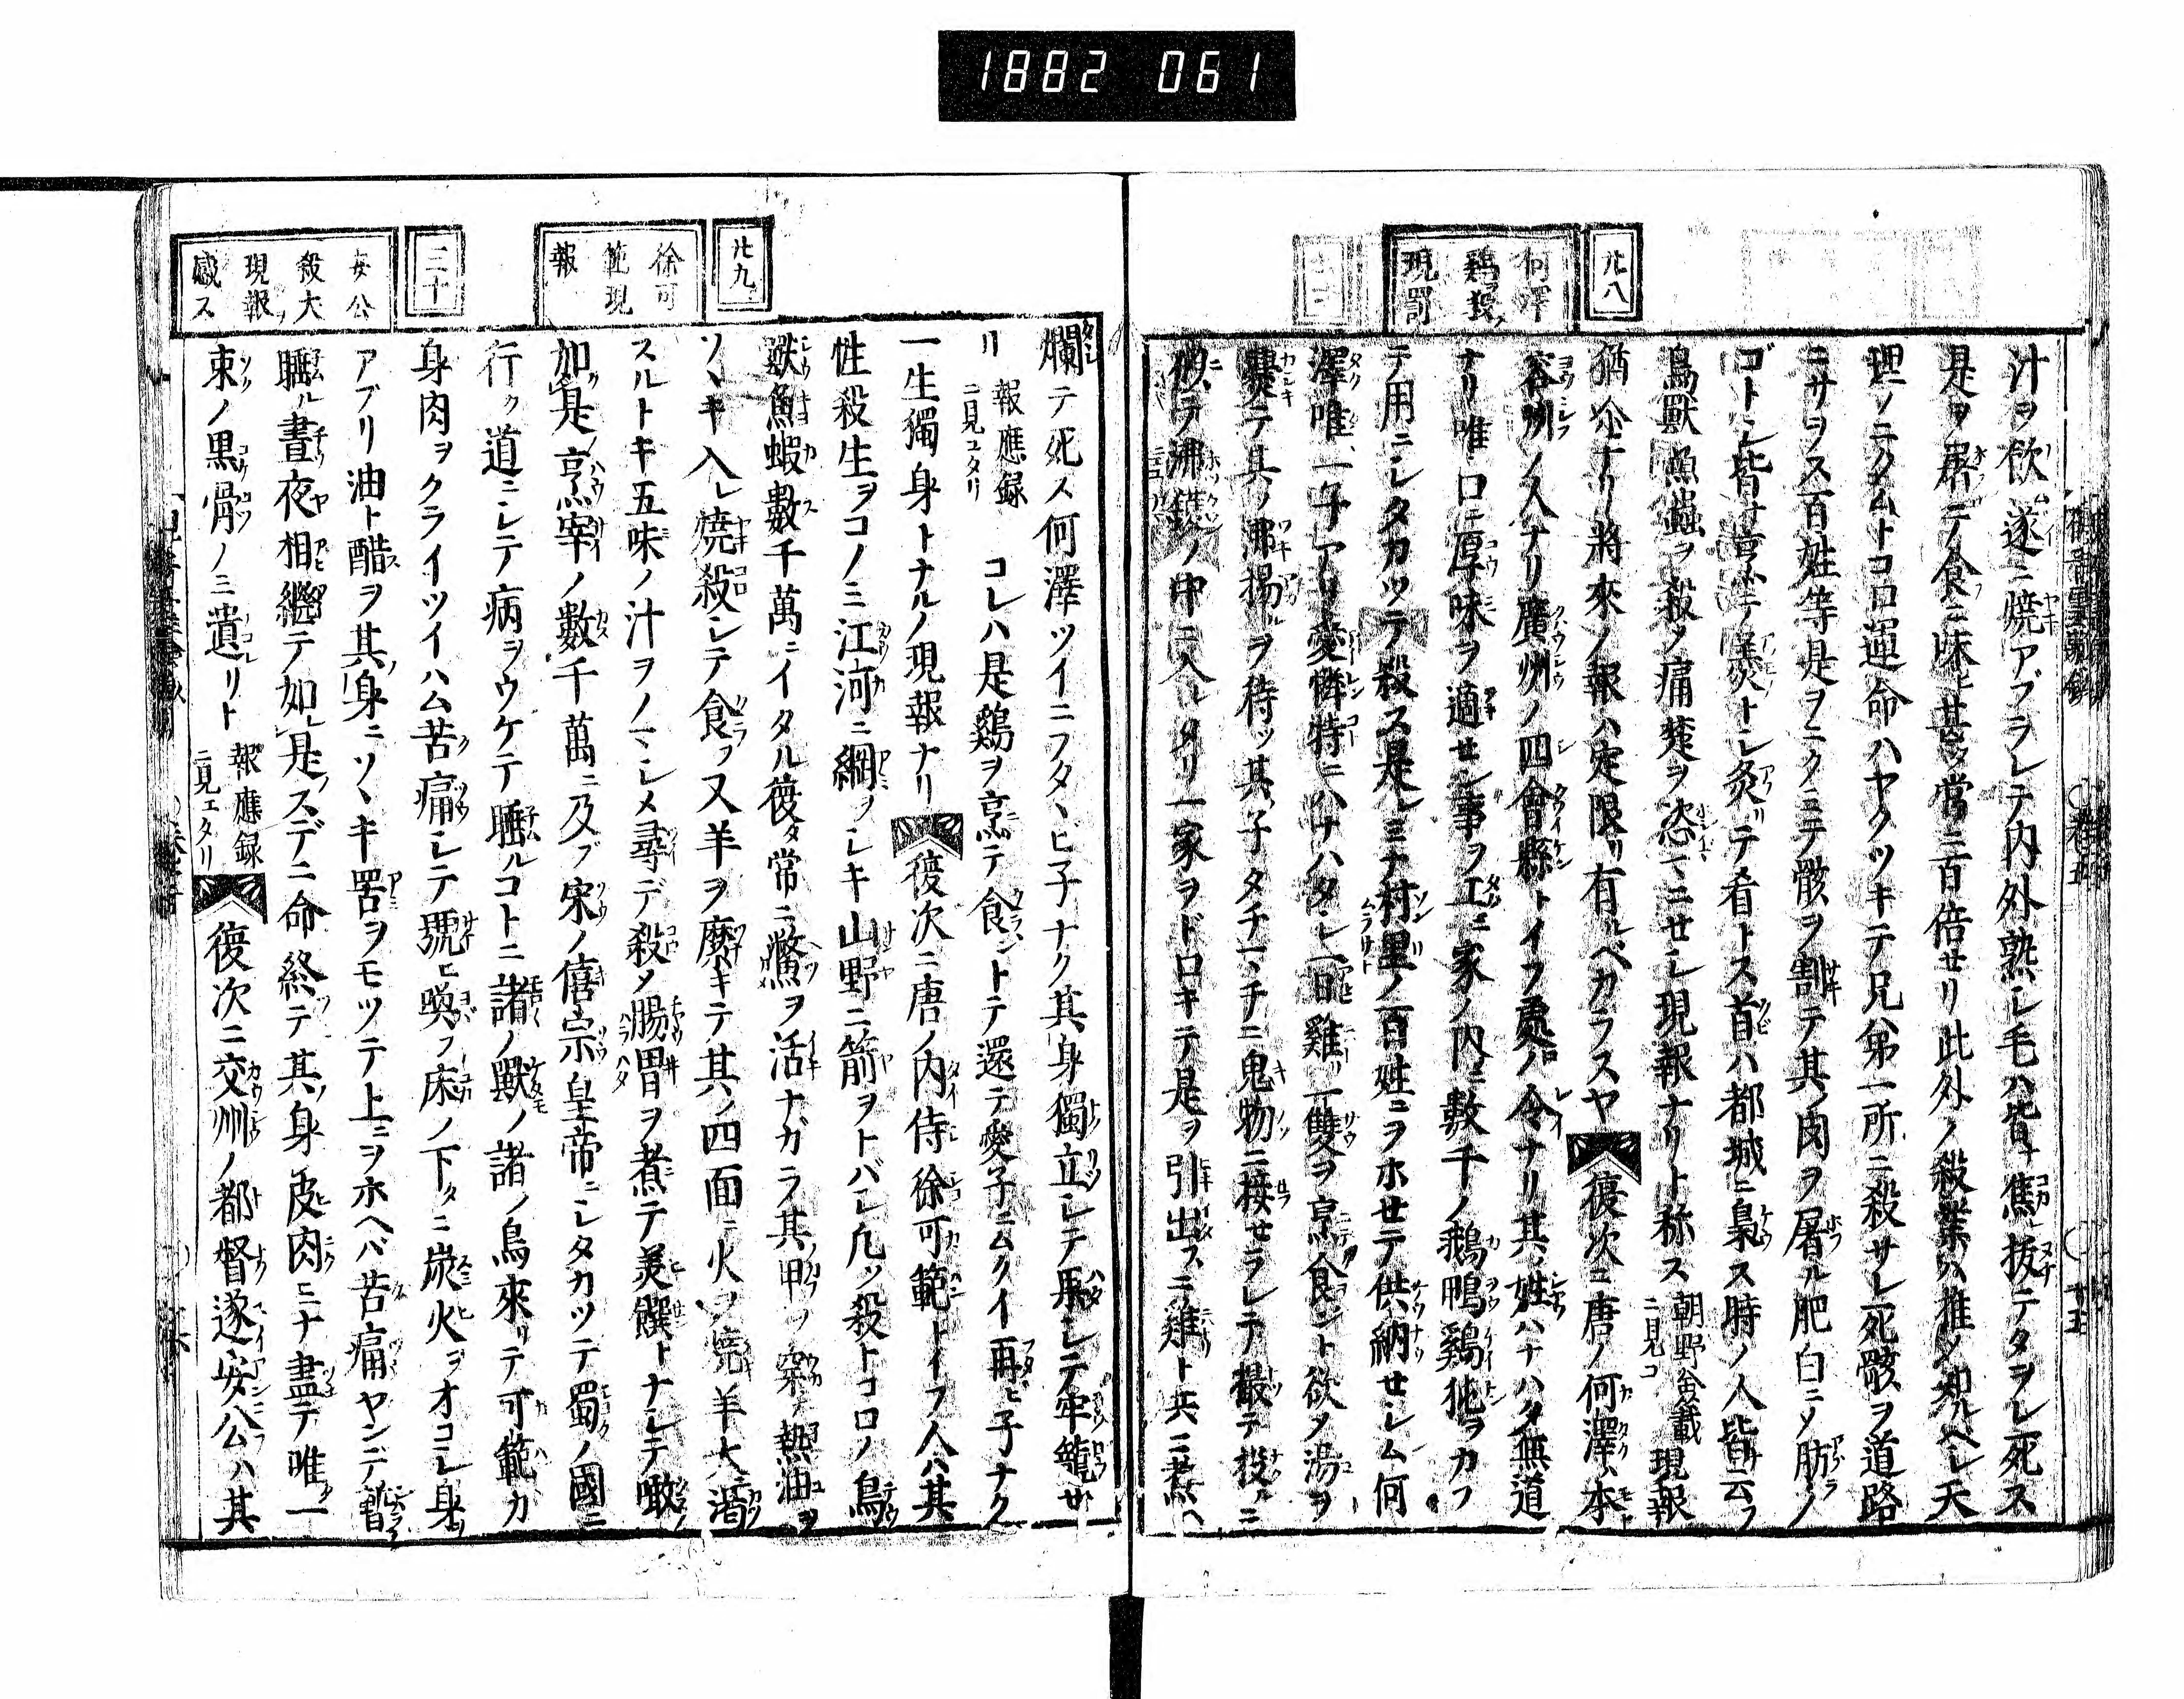 1882 061
十八
何澤
鷄ヲ殺ノ
現罰
汁ヲ飲遂ニ焼アブラレテ内外熟レ毛ハ皆焦抜テタヲレ死ス
是ヲ屠テ食ニ味ヒ甚タ常ニ百倍セリ此外ノ殺業ハ推メ知ルベシ天
理ノニクムトコロ運命ハヤクツキテ兄弟一所ニ殺サレ死骸ヲ道路
ニサラス百姓等是ヲニクミテ骸ヲ割テ其肉ヲ屠ル肥白ニメ肪ノ
ゴトシ皆ナ羹トシ灸テ肴トス首ハ都城ニ梟ス時ノ人皆云フ
鳥獸魚蟲ヲ殺メ痛楚ヲ恣マヽニセシ現報ナリト称ス 朝野僉載ニ見コ 現報
猶尒ナリ將來ノ報ハ定限リ有ルベカラスヤ 復次ニ唐ノ何澤ハ本ト
容州ノ人ナリ廣州ノ四會縣トイフ處ノ令ナリ其姓ハナハタ無道
ナリ唯口ニ厚味ヲ適セン事ヲ工ミ家ノ内ニ數千ノ鵝鴨鷄㹠ヲカフ
テ用ニシタカツテ殺ス是レミナ村里ノ百姓ニヲホセテ供納セシム何
澤唯一子アリ愛憐特ニハナハタシ一日雞一雙ヲ烹食ント欲メ湯ヲ
爨テ其ノ沸揚ルヲ待ツ其子タチマチニ鬼物ニ接セラレテ撮テ投ルニ
似テ沸鑊ノ中ニ入レリ一家ヲドロキテ是ヲ引出スニ雞ト共ニ煮ヘ
卷五
十五
十九
徐可
範現
報
二十
安公
殺大
現報ノ
感ス
爛テ死ス何澤ツイニフタヽビ子ナク其身獨立シテ牢籠セ
リ 報應録ニ見エタリ コレハ是鷄ヲ烹テ食ントテ還テ愛子ニムクイ再ヒ子ナク
一生獨身トナルノ現報ナリ 復次ニ唐ノ内侍徐可範トイフ人ハ其
性殺生ヲコノミ江河ニ網ヲシキ山野ニ箭ヲトバシ凡ソ殺トコロノ鳥
獸魚蝦數千萬ニイタル復タ常ニ鱉ヲ活ナガラ其甲ヲ穿テ熱油ヲ
ソヽキ入レ焼殺シテ食フ又羊ヲ縻キテ其ノ四面ニ火ヲ焼羊大ニ渇
スルトキ五味ノ汁ヲノマシメ尋デ殺メ腸胃ヲ煮テ美饌トナシテ噉
如是烹宰ノ數千萬ニ及ブ宋ノ僖宗皇帝ニシタカツテ蜀ノ國ニ
行ク道ニシテ病ヲウケテ睡ルコトニ諸ノ獸ノ諸ノ鳥來リテ可範カ
身肉ヲクライツイハム苦痛シテ號ヒ喚フ床ノ下タニ炭火ヲオコシ身ヲ
アブリ油ト醋ヲ其身ニソヽキ罟ヲモツテ上ニヲホヘバ苦痛ヤンデ暫ク
睡ル晝夜相繼テ如是スデニ命終テ其ノ身皮肉ミナ盡テ唯一
束ノ黒骨ノミ遺リト 報應録ニ見エタリ 復次ニ交州ノ都督遂安公ハ其